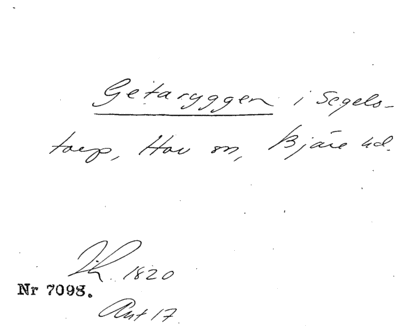 Getaryggen i Segels-
torp, Hov sn, Bjäre hd.
1820
Nr 7098.
Ant 17